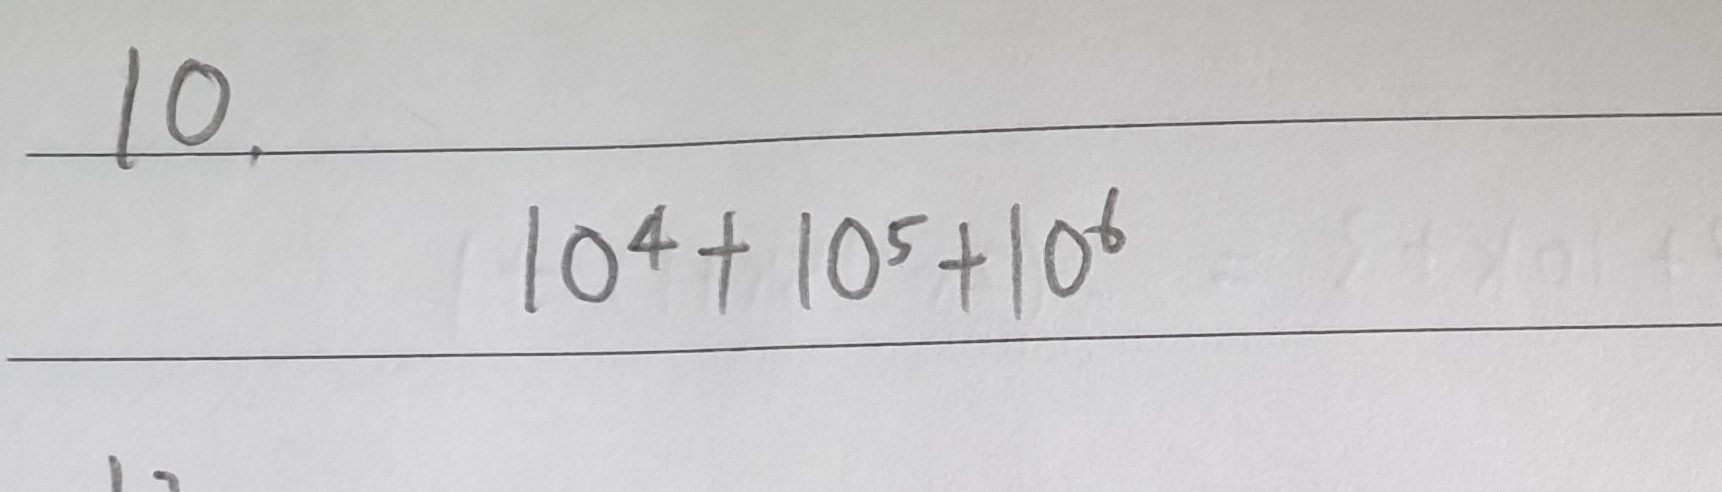 10.
10⁴ + 10⁵ + 10⁶